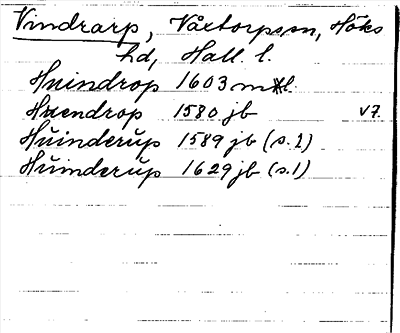 Vindrarp, Vårtorpssn, Höks
hd, Hall. l.
Huindrop 1603 mtl.
Huendrop 1580 jb V7.
Huinderup 1589 jb (s. 1)
Huinderup 1629 jb (s. 1)